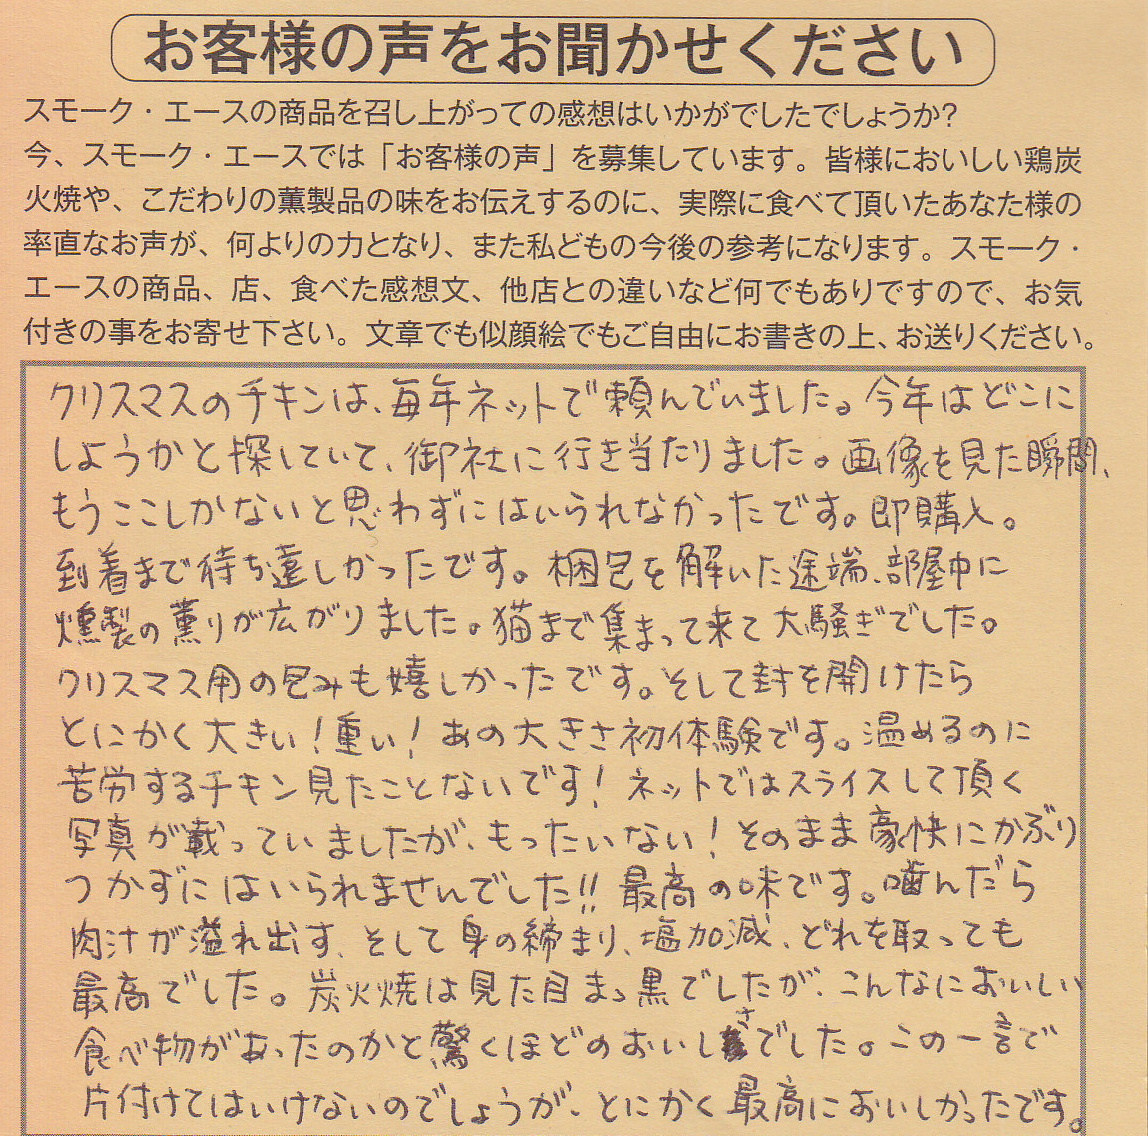 お客様の声をお聞かせください
スモーク・エースの商品を召し上がっての感想はいかがでしたでしょうか?
今、スモーク・エースでは「お客様の声」を募集しています。皆様においしい鶏炭
火焼や、こだわりの薫製品の味をお伝えするのに、実際に食べて頂いたあなた様の
率直なお声が、何よりの力となり、また私どもの今後の参考になります。スモーク・
エースの商品、店、食べた感想文、他店との違いなど何でもありですので、お気
付きの事をお寄せ下さい。文章でも似顔絵でもご自由にお書きの上、お送りください。
クリスマスのチキンは、毎年ネットで頼んでいました。今年はどこに
しようかと探していて、御社に行き当たりました。画像を見た瞬間、
もうここしかないと思わずにはいられなかったです。即購入。
到着まで待ち遠しかったです。梱包を解いた途端、部屋中に
燻製の薫りが広がりました。猫まで集まって来て大騒ぎでした。
クリスマス用の包みも嬉しかったです。そして封を開けたら
とにかく大きい!重い!あの大きさ初体験です。温めるのに
苦労するチキン見たことないです!ネットではスライスして頂く
写真が載っていましたが、もったいない!そのまま豪快にかぶり
つかずにはいられませんでした!!最高の味です。噛んだら
肉汁が溢れ出す、そして身の締まり、塩加減、どれを取っても
最高でした。炭火焼は見た目まっ黒でしたが、こんなにおいしい
食べ物があったのかと驚くほどのおいしさでした。この一言で
片付けてはいけないのでしょうが、とにかく最高においしかったです。